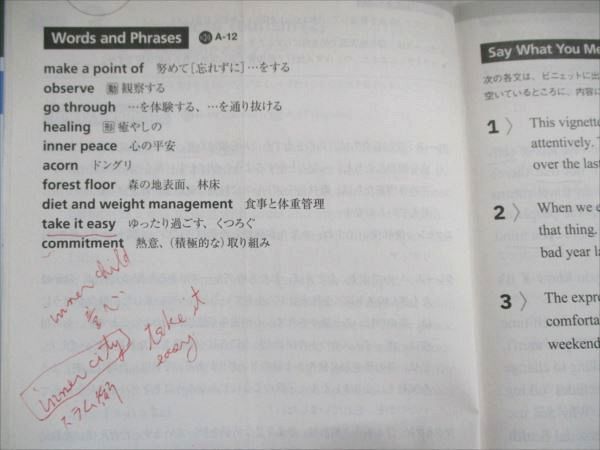 Words and Phrases A-12
make a point of 努めて[忘れずに]…をする
observe 動 観察する
go through …を体験する、…を通り抜ける
healing 形 癒やしの
inner peace 心の平安
acorn ドングリ
forest floor 森の地表面、林床
diet and weight management 食事と体重管理
take it easy ゆったり過ごす、くつろぐ
commitment 熱意、(積極的な)取り組み
inner child
童心
inner city
スラム街
take it
easy
Say What You Me
次の各文は、ビニェットに出
空いているところに、内容に
1 〉 This vignette
attentively. T
over the last
2 〉 When we e
that thing.
bad year la
3 〉 The expre
comforta
weekend